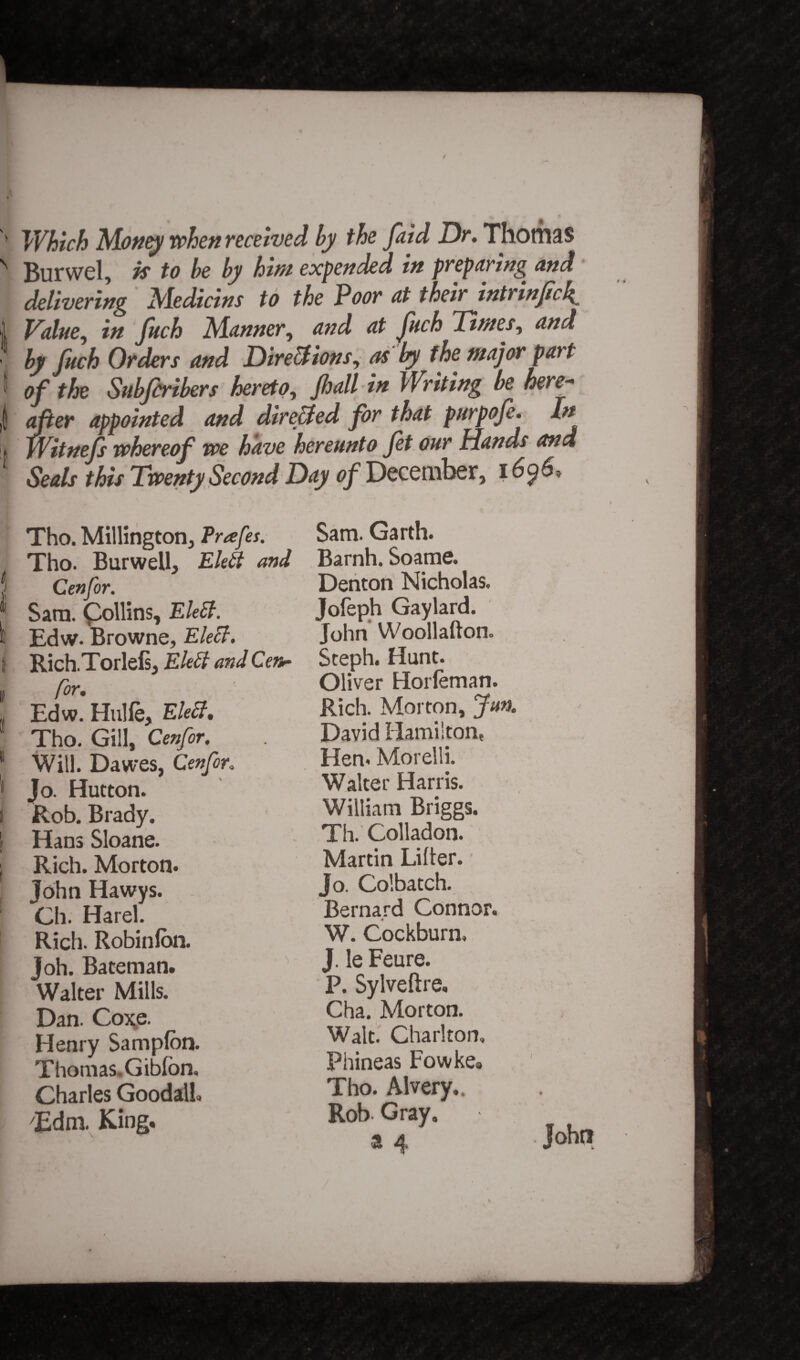 Which Money when received by the ſaid Dr. Thomas
Burwel, is to be by him expended in preparing and
delivering Medicins to the Poor at their intrinſick
Value, in ſuch Manner, and at ſuch Times, and
by ſuch Orders and Directions, as by the major part
of the Subſcribers hereto, ſhall in Writing be here-
after appointed and directed for that purpoſe. In
Witneſs whereof we have hereunto ſet our Hands and
Seals this Twenty Second Day of December, 1696,
Tho. Millington, Præſes.
Tho. Burwell, Elect and
Cenſor.
Sam. Collins, Elect.
Edw. Browne, Elect.
Rich.Torleſs, Elect and Cen-
ſor.
Edw. Hulſe, Elect.
Tho. Gill, Cenſor.
Will. Dawes, Cenſor.
Jo. Hutton.
Rob. Brady.
Hans Sloane.
Rich. Morton.
John Hawys.
Ch. Harel.
Rich. Robinſon.
Joh. Bateman.
Walter Mills.
Dan. Coxe.
Henry Sampſon.
Thomas Gibſon.
Charles Goodall.
Edm. King.
Sam. Garth.
Barnh. Soame.
Denton Nicholas.
Joſeph Gaylard.
John Woollaſton.
Steph. Hunt.
Oliver Horſeman.
Rich. Morton, Jun.
David Hamilton.
Hen. Morelli.
Walter Harris.
William Briggs.
Th. Colladon.
Martin Liſter.
Jo. Colbatch.
Bernard Connor.
W. Cockburn.
J. le Feure.
P. Sylveſtre.
Cha. Morton.
Walt. Charlton.
Phineas Fowke.
Tho. Alvery.
Rob. Gray.
a 4
John